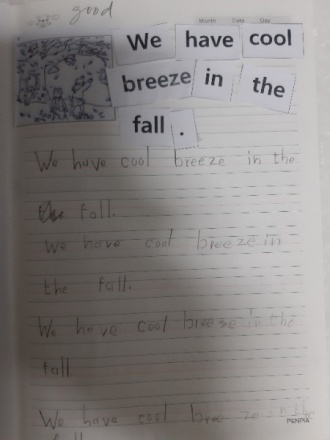 good
Month Date Day
We have cool
breeze in the
fall .
We have cool breeze in the
fall.
We have cool breeze in
the fall.
We have cool breeze in the
fall
We have cool breeze in the
fall
PENPIA